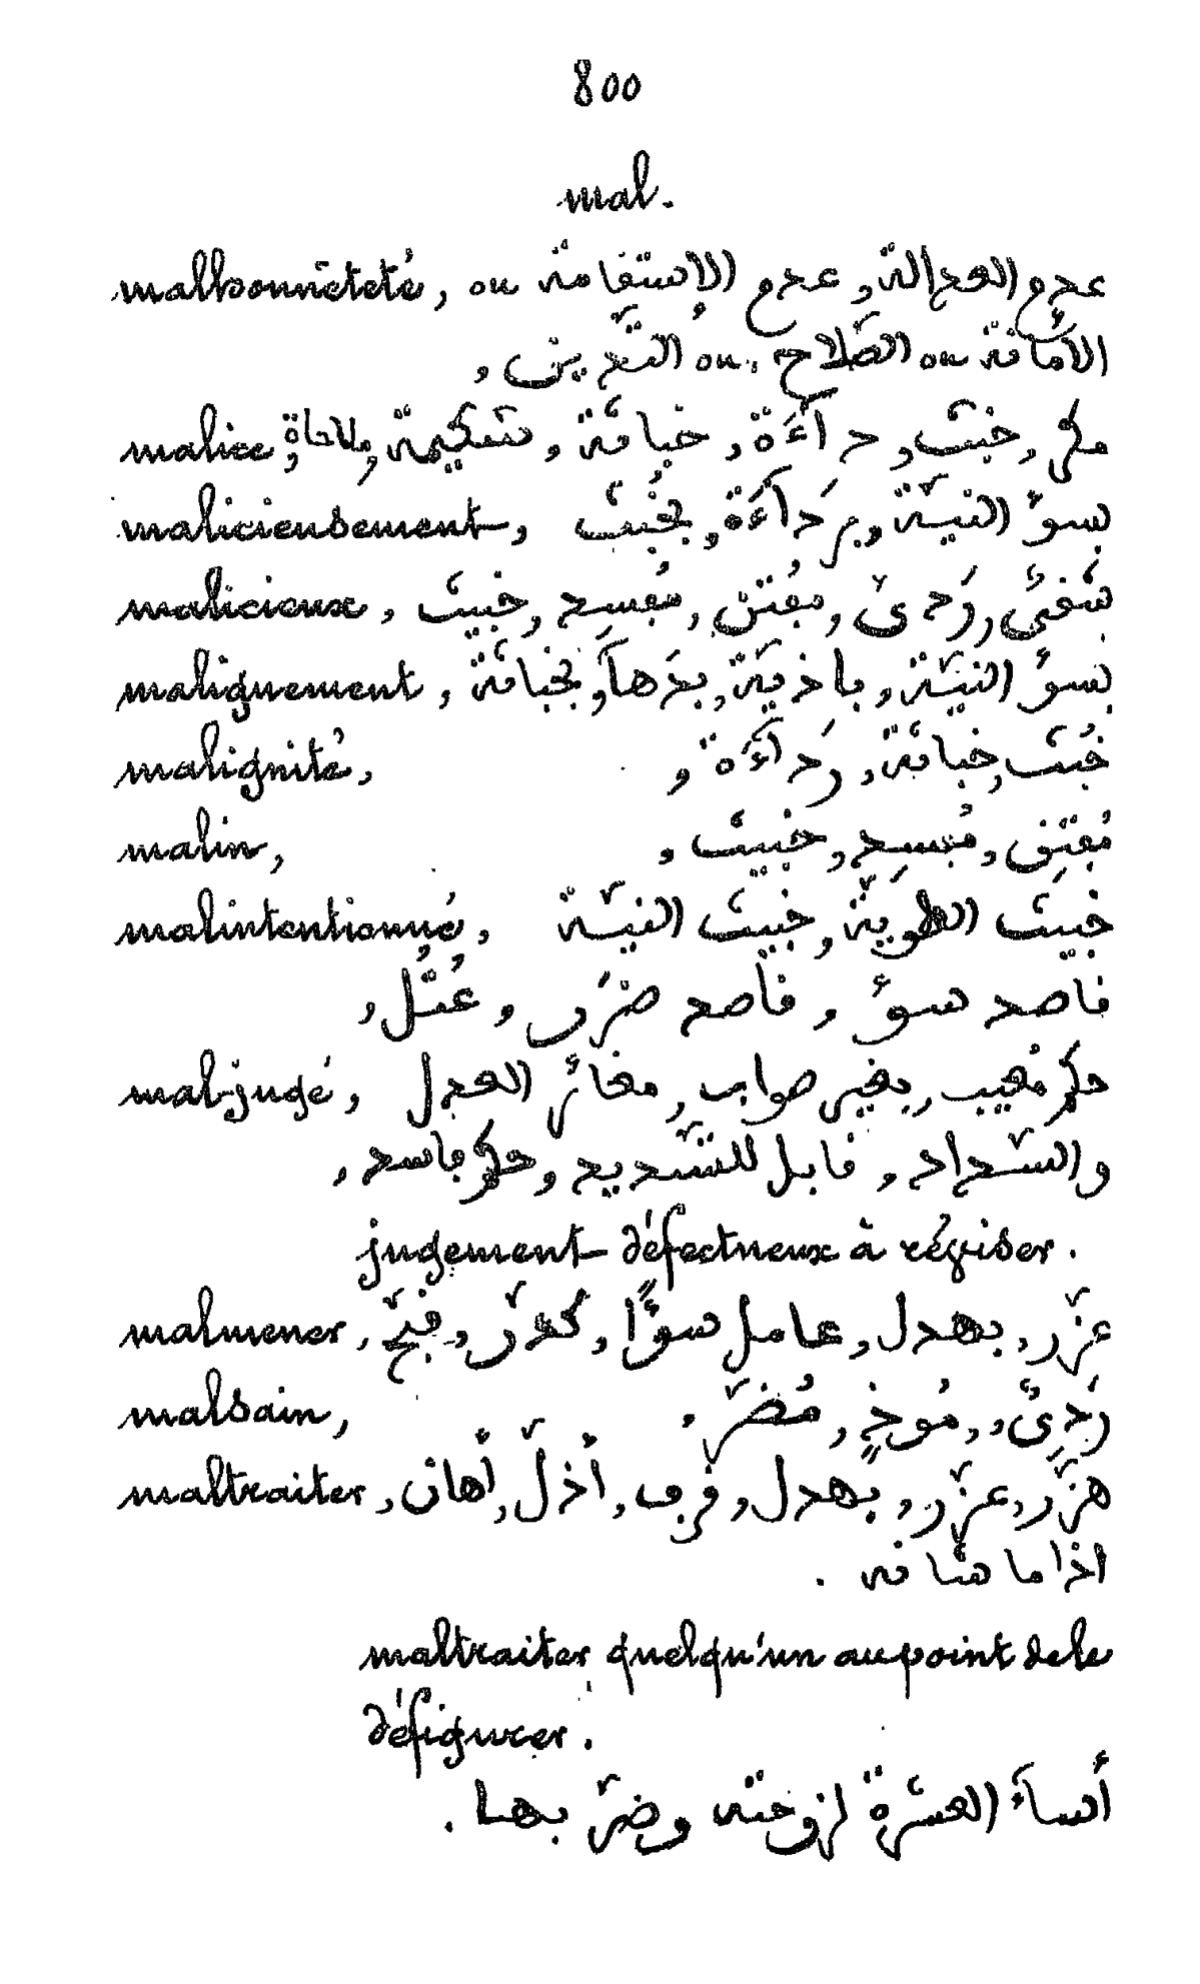 800
mal.
malhonnêteté, ou عدم العدالة, عدم الإستقامة
الأمانة ou الصّلاح ou التّدين,
malice, مكر, خبث, رداءَة, خباثة, شكيمة, ملاحاة
malicieusement, بسوءِ النيّة, برَداءَة, بخُبث
malicieux, شقيّ, رَدئ, مفُتن, مُفسِد, خبيث
malignement, بسوءِ النيّة, باذيّة, بدَهاءَ, بخباثة
malignité, خُبث, خباثة, رَداءَة,
malin, مُفتِن, مُفسِد, خبيث,
malintentionné, خبيث الطويّة, خبيث النيّة
قاصد سوءِ, قاصد ضرَر, عُتُلّ,
mal-jugé, حكم مُعيب, بغير صواب, مغائر العدل
والسّداد, قابل للتّسديد, حكم فاسد,
jugement défectueux à réviser.
malmener, عزّر, بهدل, عامل سوءًا, كدّر, قبّح
malsain, رَدِئّ, مُوذٍ, مُضرّ,
maltraiter, هزّر, عزّر, بهدل, قرف, أذلّ, أهان
اذاما شانه.
maltraiter quelqu'un au point de le
défigurer.
أساءَ العشرة لزوجته وضرّ بها.